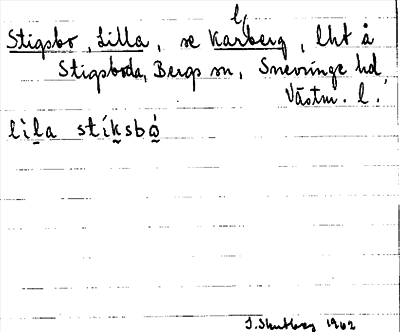 l,
Stigsbo, Lilla, se Karberg, lht å
Stigsboda, Bergs sn, Snevringe hd,
Västm. l.
lìla stíksbò̰
1962